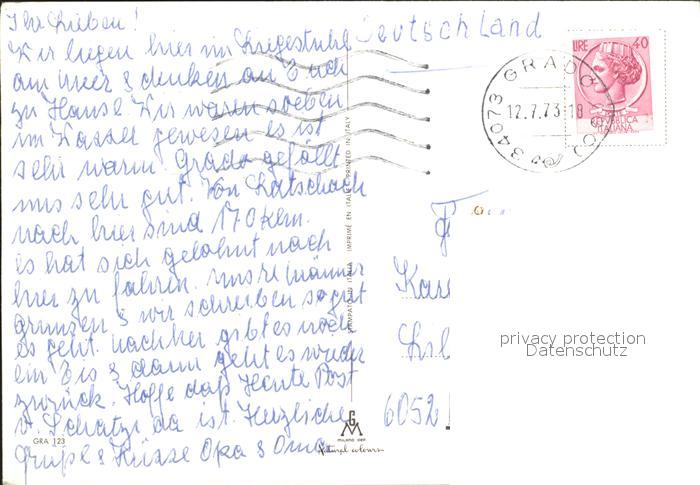 Ihr Lieben!
Wir liegen hier im Liegestuhl
am Meer & denken an Euch
zu Hause. Wir waren soeben
im Wasser gewesen es ist
sehr warm. Grado gefällt
uns sehr gut. Von Kötschach
nach hier sind 170 klm.
es hat sich gelohnt nach
hier zu fahren. unsre Männer
grunzen & wir schreiben so gut
es geht. nachher gibt es noch
ein Eis & dann geht es wieder
zurück. Hoffe daß Heute Post
v. Schatzi da ist. Herzliche
Grüße & Küsse Opa & Oma
GRA 123
STAMPATO IN ITALIA IMPRIMÉ EN ITALIE PRINTED IN ITALY
GM
MILANO DEP.
Natural colours
Deutschland
LIRE 40
REPUBBLICA
ITALIANA
34073 GRADO (GO)
12.7.73 18
F
Kar
6052
privacy protection
Datenschutz